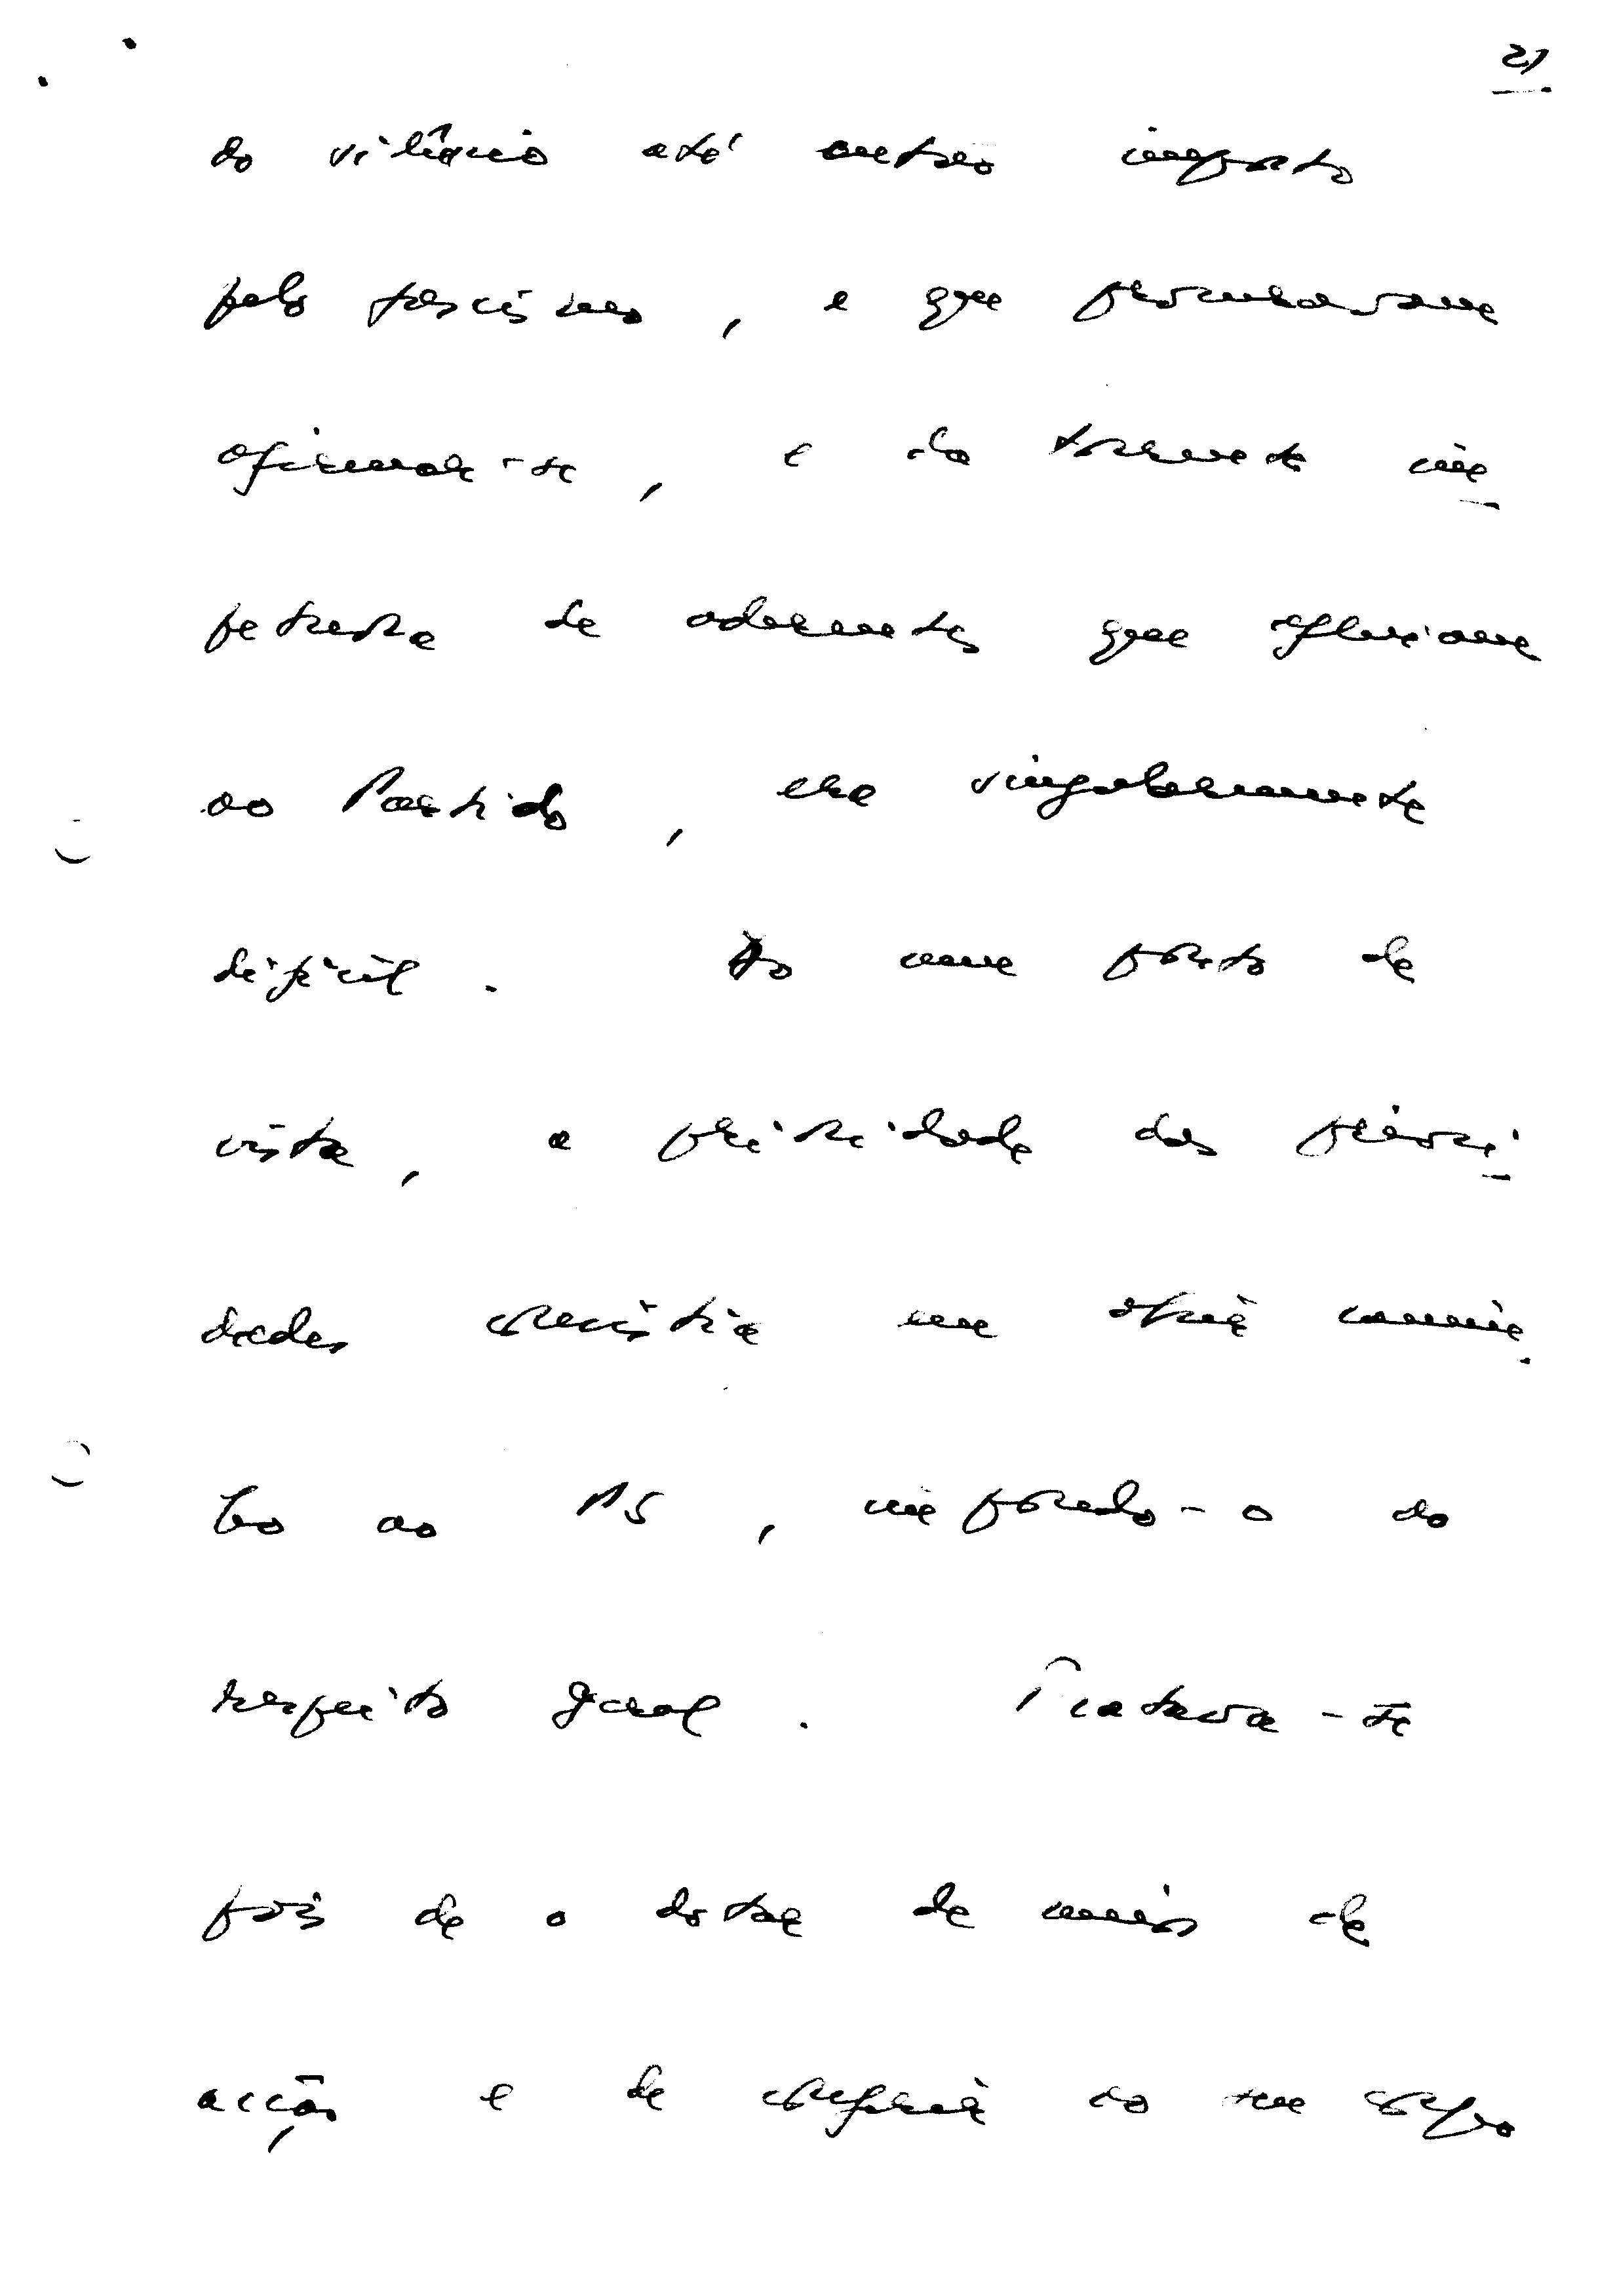 2)
do silêncio até então imposto
pelo fascismo, e que procuravam
afirmar-se, e da torrente im
petuosa de aderentes que afluíam
ao Partido, era singularmente
difícil. Do meu ponto de
vista, a prioridade das priori
dades consistia em abrir cami
ho ao PS, impondo-o ao
respeito geral. Tratava-se
pois de o dotar de meios de
acção e de conferir ao seu corpo